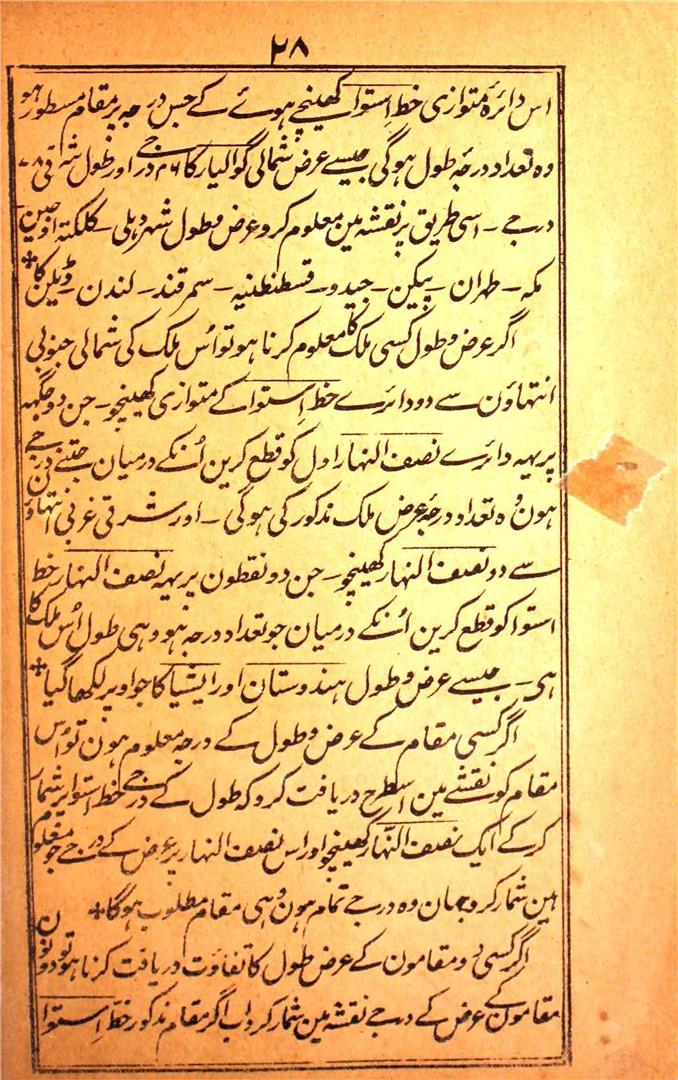 ۲۸
اس دائرہ متوازی خط استوا کھینچے ہوئے کے جس درجہ پر مقام مسطور ہو
وہ تعداد درجہ طول ہوگی جیسے عرض شمالی گوالیار کا ۲۶ درجے اور طول شرقی ۷۸
درجے ۔ اسی طریق پر نقشہ مین معلوم کرو عرض و طول شہر دہلی ۔ کلکتہ اوجین
مکہ ۔ طہران ۔ پیکن ۔ جیدو ۔ قسطنطنیہ ۔ سمرقند ۔ لندن ۔ ڈبلین کا
اگر عرض و طول کسی ملک کا معلوم کرنا ہو تو اُس ملک کی شمالی جنوبی
انتہاؤن سے دو دائرے خط استوا کے متوازی کھینچو ۔ جن دو جگہہ
پر یہہ دائرے نصف النہار اول کو قطع کرین اُنکے درمیان جتنے درجے
ہون وہ تعداد درجہ عرض ملک مذکور کی ہوگی ۔ اور شرقی غربی انتہاؤن
سے دو نصف النہار کھینچو ۔ جن دو نقطون پر یہہ نصف النہار خط
استوا کو قطع کرین اُنکے درمیان جو تعداد درجہ ہو وہی طول اُس ملک کا
ہی ۔ جیسے عرض و طول ہندوستان اور ایشیا کا جو اوپر لکھا گیا
اگر کسی مقام کے عرض و طول کے درجہ معلوم ہون تو اُس
مقام کو نقشے مین اسطرح دریافت کرو کہ طول کے درجے خط استوا پر شمار
کرکے ایک نصف النہار کھینچو اور اس نصف النہار پر عرض کے درجے جو معلوم
ہین شمار کرو جہان وہ درجے تمام ہون وہی مقام مطلوب ہوگا
اگر کسی دو مقامون کے عرض طول کا تفاوت دریافت کرنا ہو تو دونون
مقامون کے عرض کے درجے نقشہ مین شمار کرو اب اگر مقام مذکور خط استوا